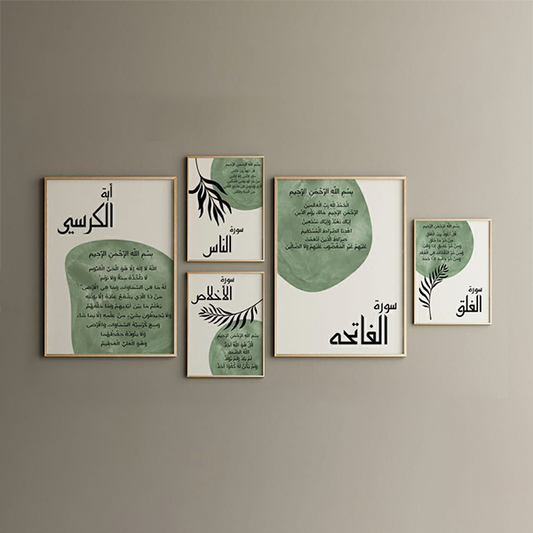 سورة
الفلق
بسم الله الرحمن الرحيم
قل أعوذ برب الفلق
من شر ما خلق
بسم الله الرحمن الرحيم
الحمد لله رب العالمين
الرحمن الرحيم مالك يوم الدين
إياك نعبد وإياك نستعين
اهدنا الصراط المستقيم
صراط الذين أنعمت
عليهم غير المغضوب عليهم ولا الضالين
سورة
الفاتحه
بسم الله الرحمن الرحيم
سورة
الناس
سورة
الأخلاص
بسم الله الرحمن الرحيم
قل هو الله أحد
الله الصمد
لم يلد ولم يولد
ولم يكن له كفوا أحد
أية
الكرسي
بسم الله الرحمن الرحيم
الله لا إله إلا هو الحي القيوم
لا تأخذه سنة ولا نوم
له ما في السماوات وما في الأرض
من ذا الذي يشفع عنده إلا بإذنه
يعلم ما بين أيديهم وما خلفهم
ولا يحيطون بشيء من علمه إلا بما شاء
وسع كرسيه السماوات والأرض
ولا يئوده حفظهما
وهو العلي العظيم